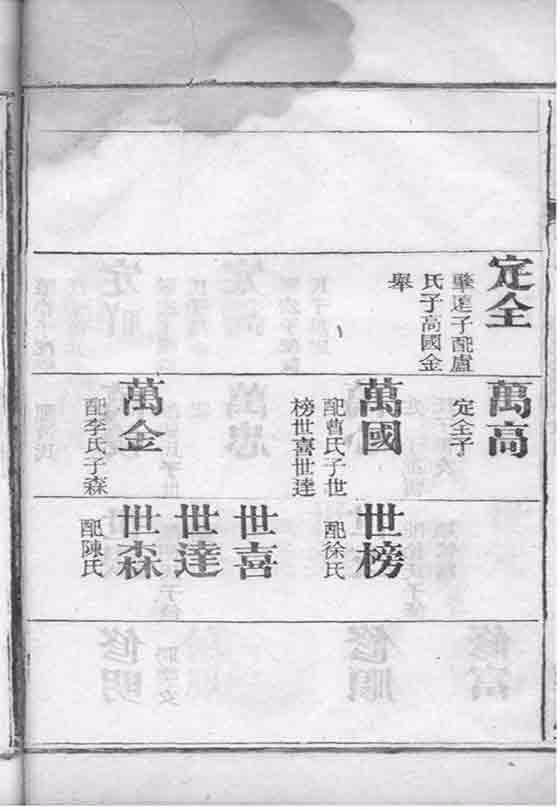 定全
肇遠子配盧
氏子高國金
舉
萬高
定全子
萬國
配曹氏子世
榜世喜世達
萬金
配李氏子森
世榜
配徐氏
世喜
世達
世森
配陳氏